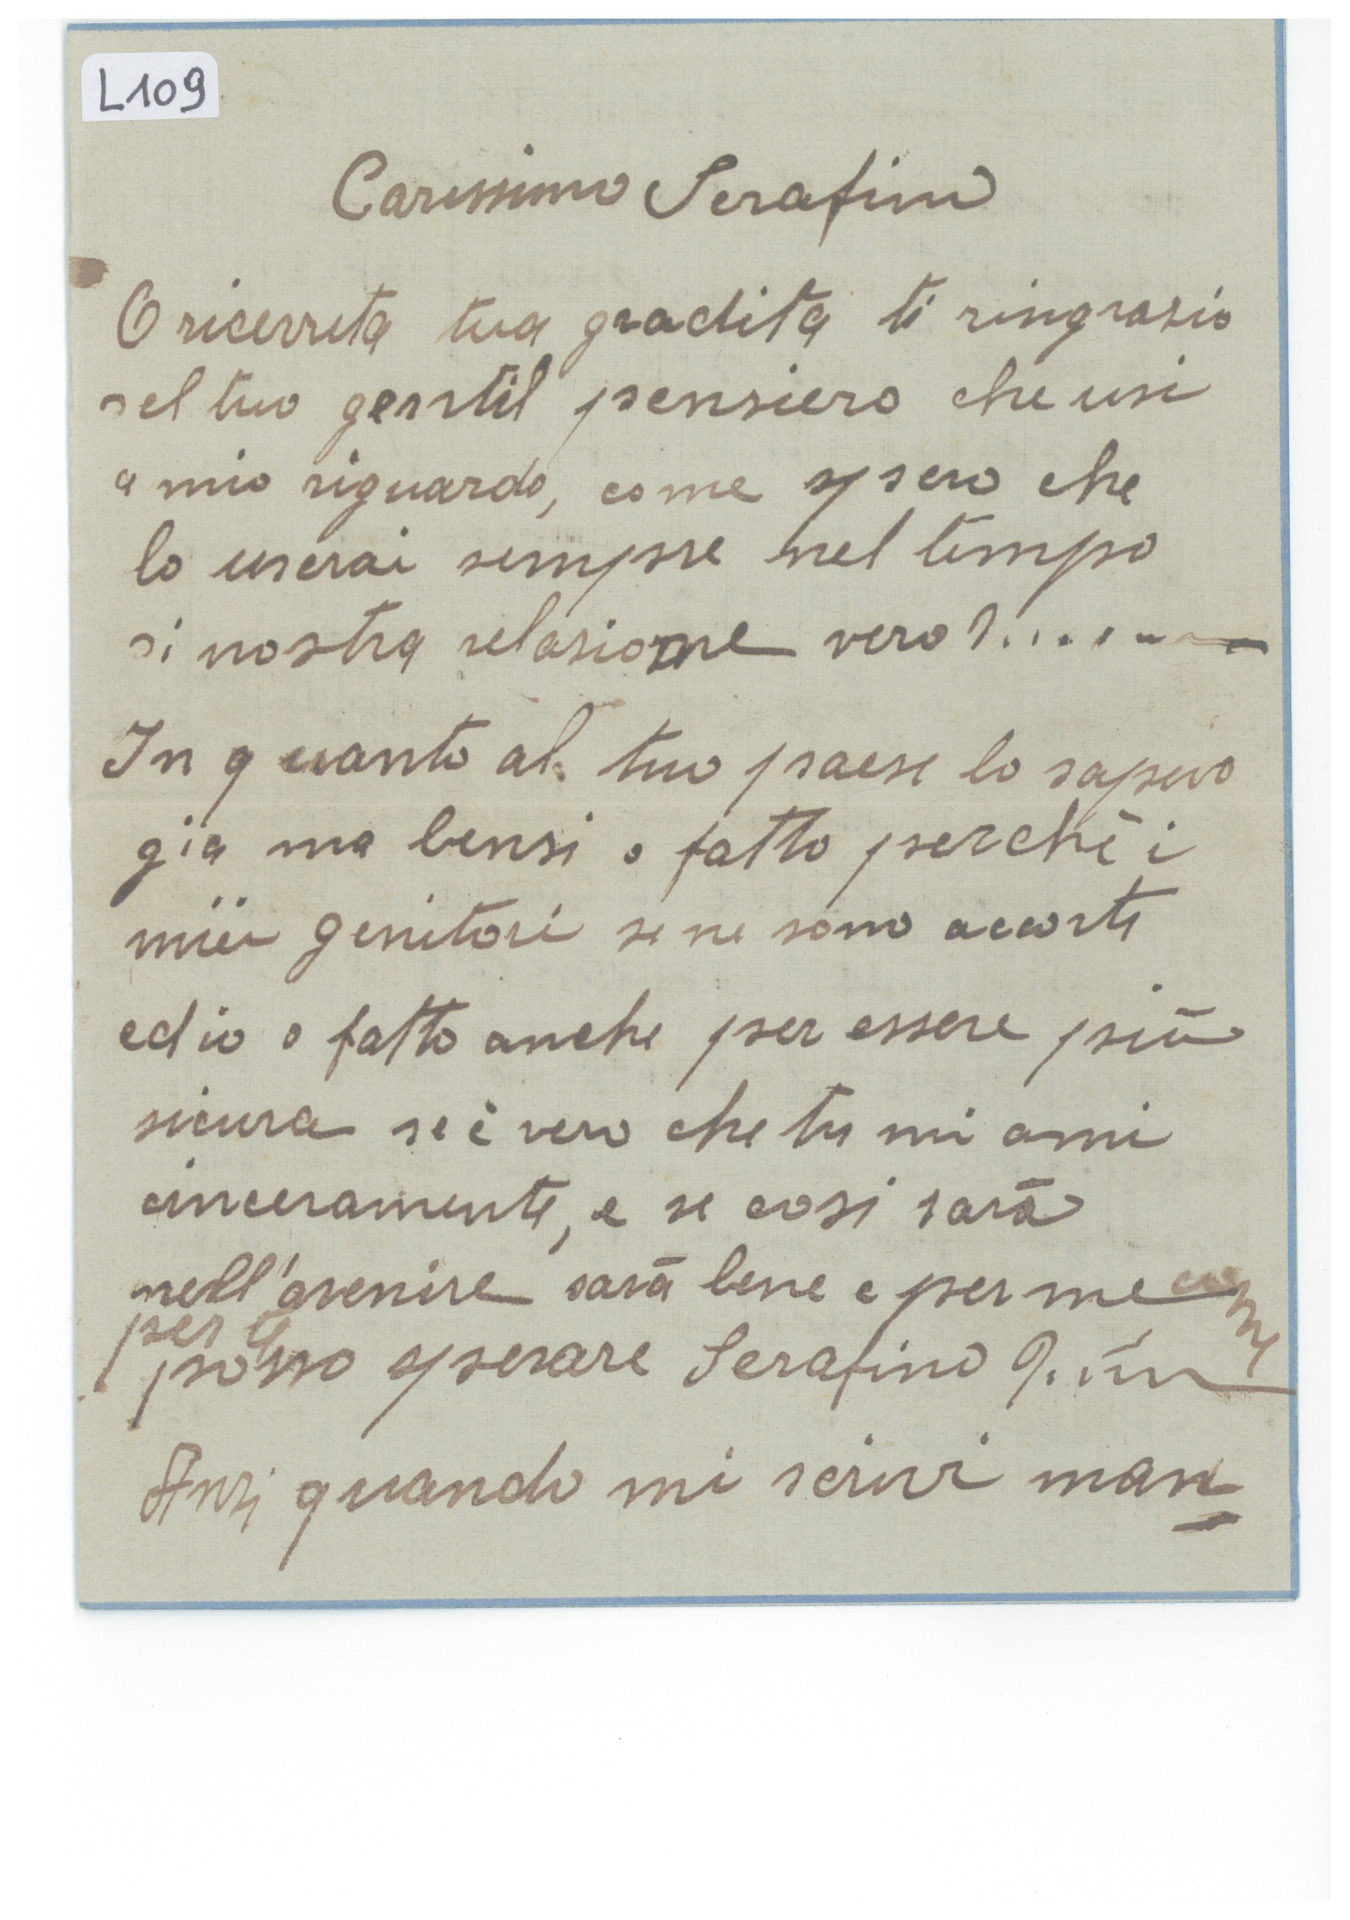 L109
Carissimo Serafino
O ricevuta tua gradita ti ringrazio
del tuo gentil pensiero che usi
a mio riguardo, come spero che
lo userai sempre nel tempo
di nostra relazione vero?......
In quanto al tuo paese lo sapevo
gia ma bensi o fatto perchè i
miei genitori se ne sono accorti
ed io o fatto anche per essere più
sicura se è vero che tu mi ami
cinceramente, e se cosi sarà
nell'avenire sarà bene e per me come
per te
posso sperare Serafino?....
Anzi quando mi scrivi man=